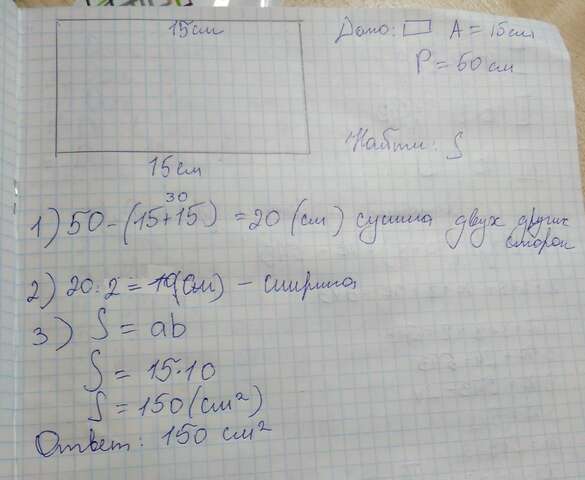 15см
Дано: ▭ A = 15см
P = 50 см
Найти: S
15 см
30
1) 50 - (15+15) = 20 (см) сумма двух других сторон
2) 20 : 2 = 10(см) - ширина
3) S = ab
S = 15·10
S = 150 (см²)
Ответ: 150 см²